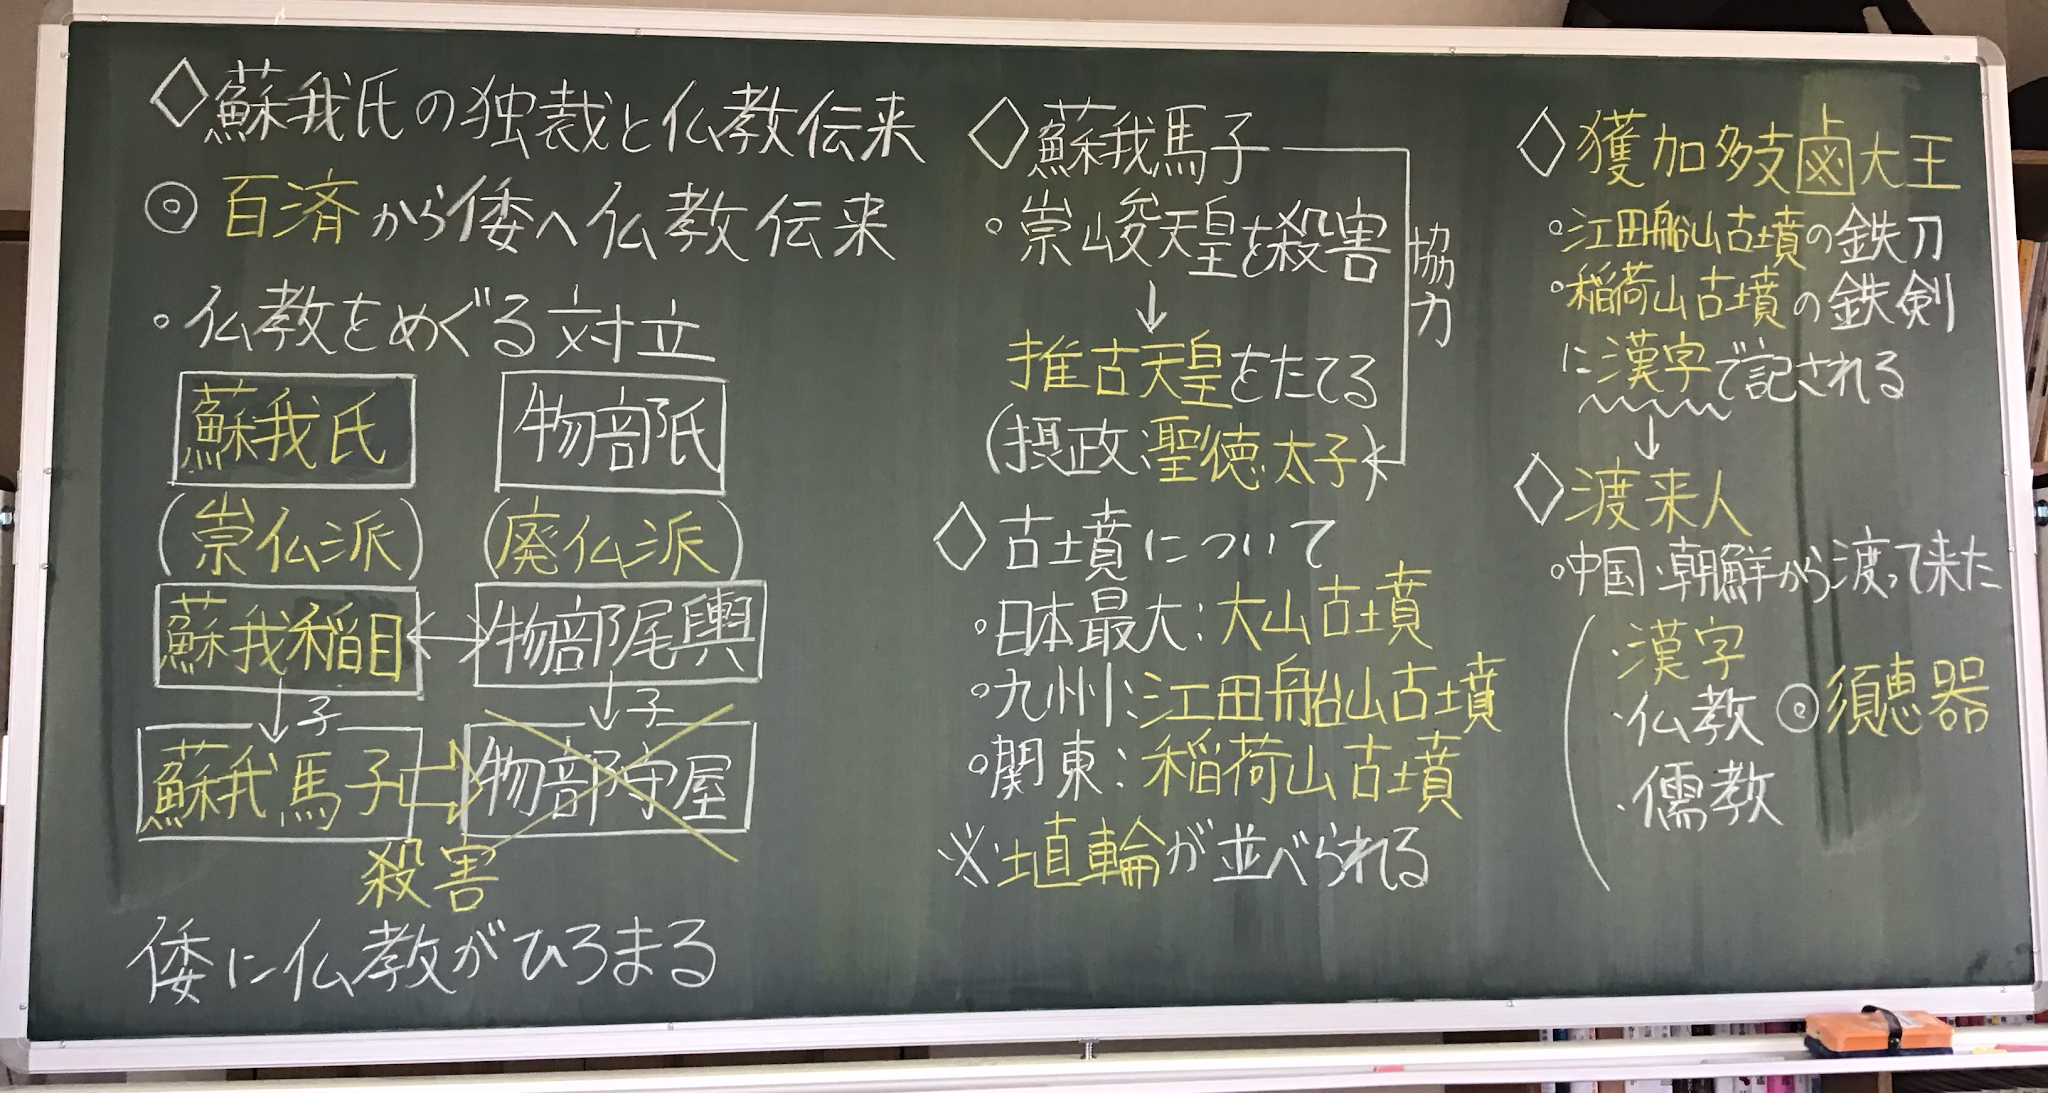 ◇蘇我氏の独裁と仏教伝来
◎百済から倭へ仏教伝来
・仏教をめぐる対立
蘇我氏 物部氏
(崇仏派) (廃仏派)
蘇我稲目 ↔ 物部尾輿
↓子 ↓子
蘇我馬子 ⇨ 物部守屋
殺害
倭に仏教がひろまる
◇蘇我馬子
・崇峻天皇を殺害
↓
推古天皇をたてる
(摂政:聖徳太子)
協力
◇古墳について
・日本最大:大山古墳
・九州:江田船山古墳
・関東:稲荷山古墳
※埴輪が並べられる
◇獲加多支鹵大王
・江田船山古墳の鉄刀
・稲荷山古墳の鉄剣
に漢字で記される
↓
◇渡来人
・中国・朝鮮から渡って来た
・漢字
・仏教 ◎須恵器
・儒教